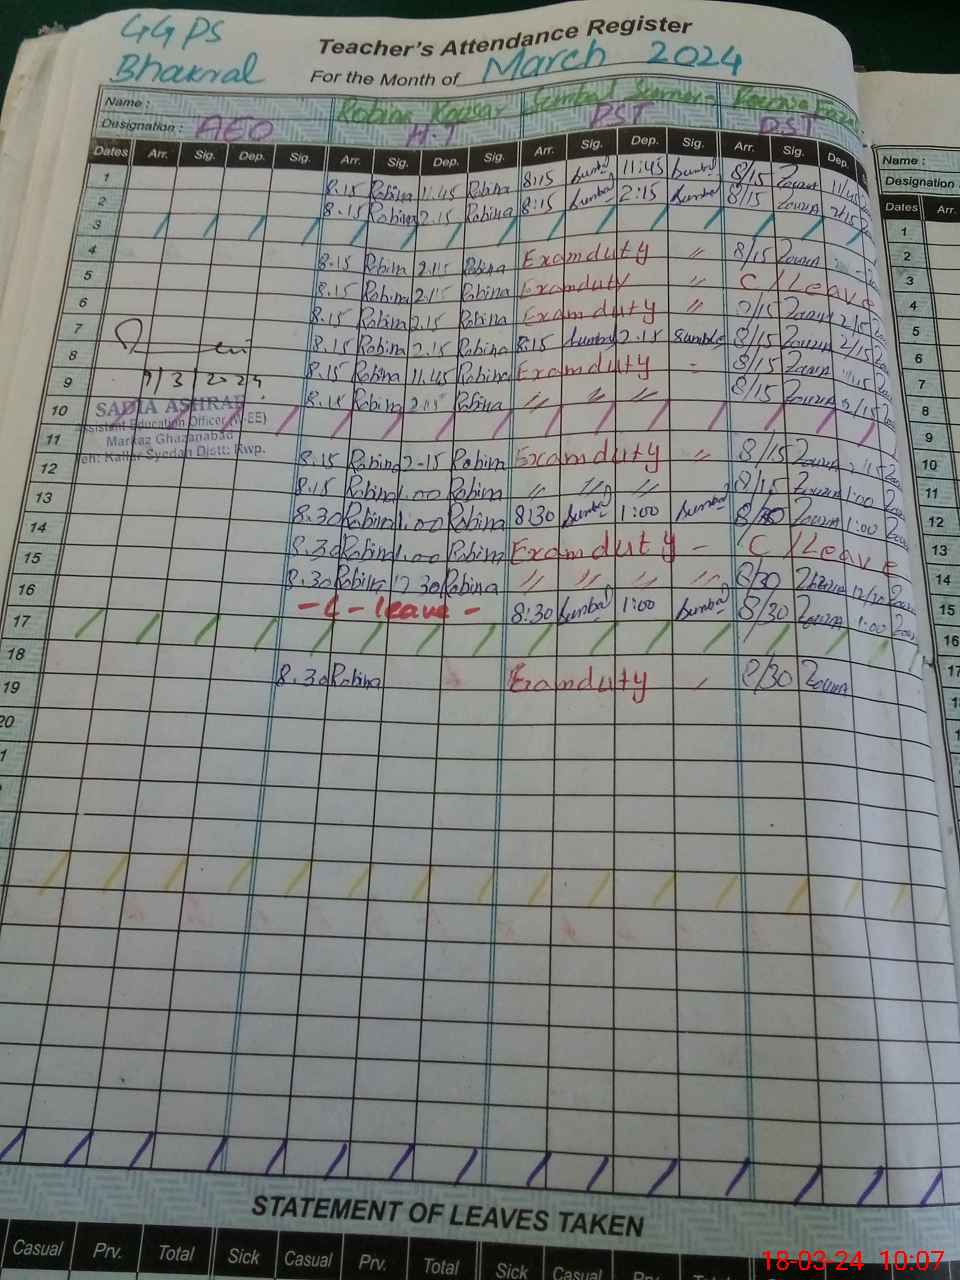 GGPS
Bhakral
Teacher's Attendance Register
For the Month of March 2024
Name : Robina Kousar Sumbal
Designation : AEO H.T PST PST
Dates Arr. Sig. Dep. Sig. Arr. Sig. Dep. Sig. Arr. Sig. Dep. Sig. Arr. Sig. Dep.
1 8.15 Robina 11.45 Robina 8:15 Sumbal 11:45 Sumbal 8/15
2 8.15 Robina 2.15 Robina 8:15 Sumbal 2:15 Sumbal 8/15 2/15
3
4 8.15 Robina 2.15 Robina Exam duty " 8/15
5 8.15 Robina 2.15 Robina Exam duty " C/Leave
6 8.15 Robina 2.15 Robina Exam duty " 8/15 2/15
7 8.15 Robina 2.15 Robina 8:15 Sumbal 2.15 Sumbal 8/15 2/15
8 8.15 Robina 11.45 Robina Exam duty - 8/15 11:45
9 8.15 Robina 2.15 Robina " " " 8/15 2/15
9/3/2024
10
SADIA ASHRAF
Assistant Education Officer (W-EE)
Markaz Ghazanabad
Teh: Kallar Syedan Distt: Rwp.
11 8.15 Robina 2-15 Robina Exam duty " 8/15 2/15
12 8.15 Robina 1.00 Robina " " " 8/15 1:00
13 8.30 Robina 1.00 Robina 8:30 Sumbal 1:00 Sumbal 8/30 1:00
14 8.30 Robina 1.00 Robina Exam duty - C/Leave
15 8.30 Robina 12.30 Robina " " " " 8/30 12/30
16 - C - leave - 8:30 Sumbal 1:00 Sumbal 8/30 1:00
17
18 8.30 Robina Exam duty 8/30
19
20
STATEMENT OF LEAVES TAKEN
Casual Prv. Total Sick Casual Prv. Total Sick Casual Prv. Total
Name :
Designation
Dates Arr.
1
2
3
4
5
6
7
8
9
10
11
12
13
14
15
16
17
18-03-24 10:07